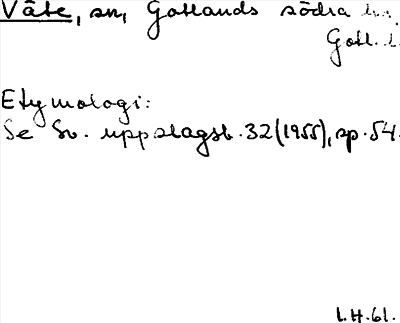 Väte, sn, Gotlands södra
Gotl. l.
Etymologi:
Se Sv. uppslagsb. 32 (1955), sp. 54.
L.H. 61.